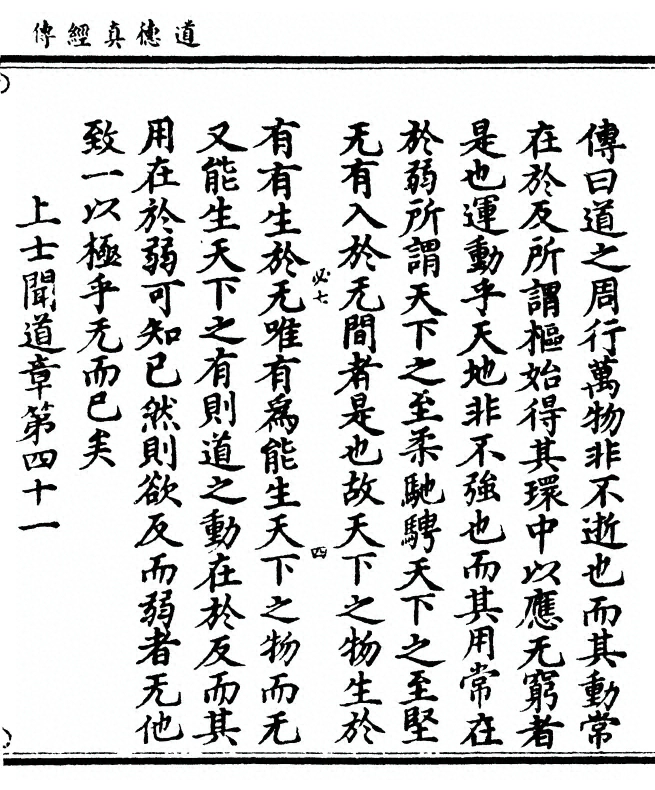 道德真經傳
傳曰道之周行萬物非不逝也而其動常
在於反所謂樞始得其環中以應无窮者
是也運動乎天地非不強也而其用常在
於弱所謂天下之至柔馳騁天下之至堅
无有入於无間者是也故天下之物生於
必七
四
有有生於无唯有爲能生天下之物而无
又能生天下之有則道之動在於反而其
用在於弱可知已然則欲反而弱者无他
致一以極乎无而已矣
上士聞道章第四十一